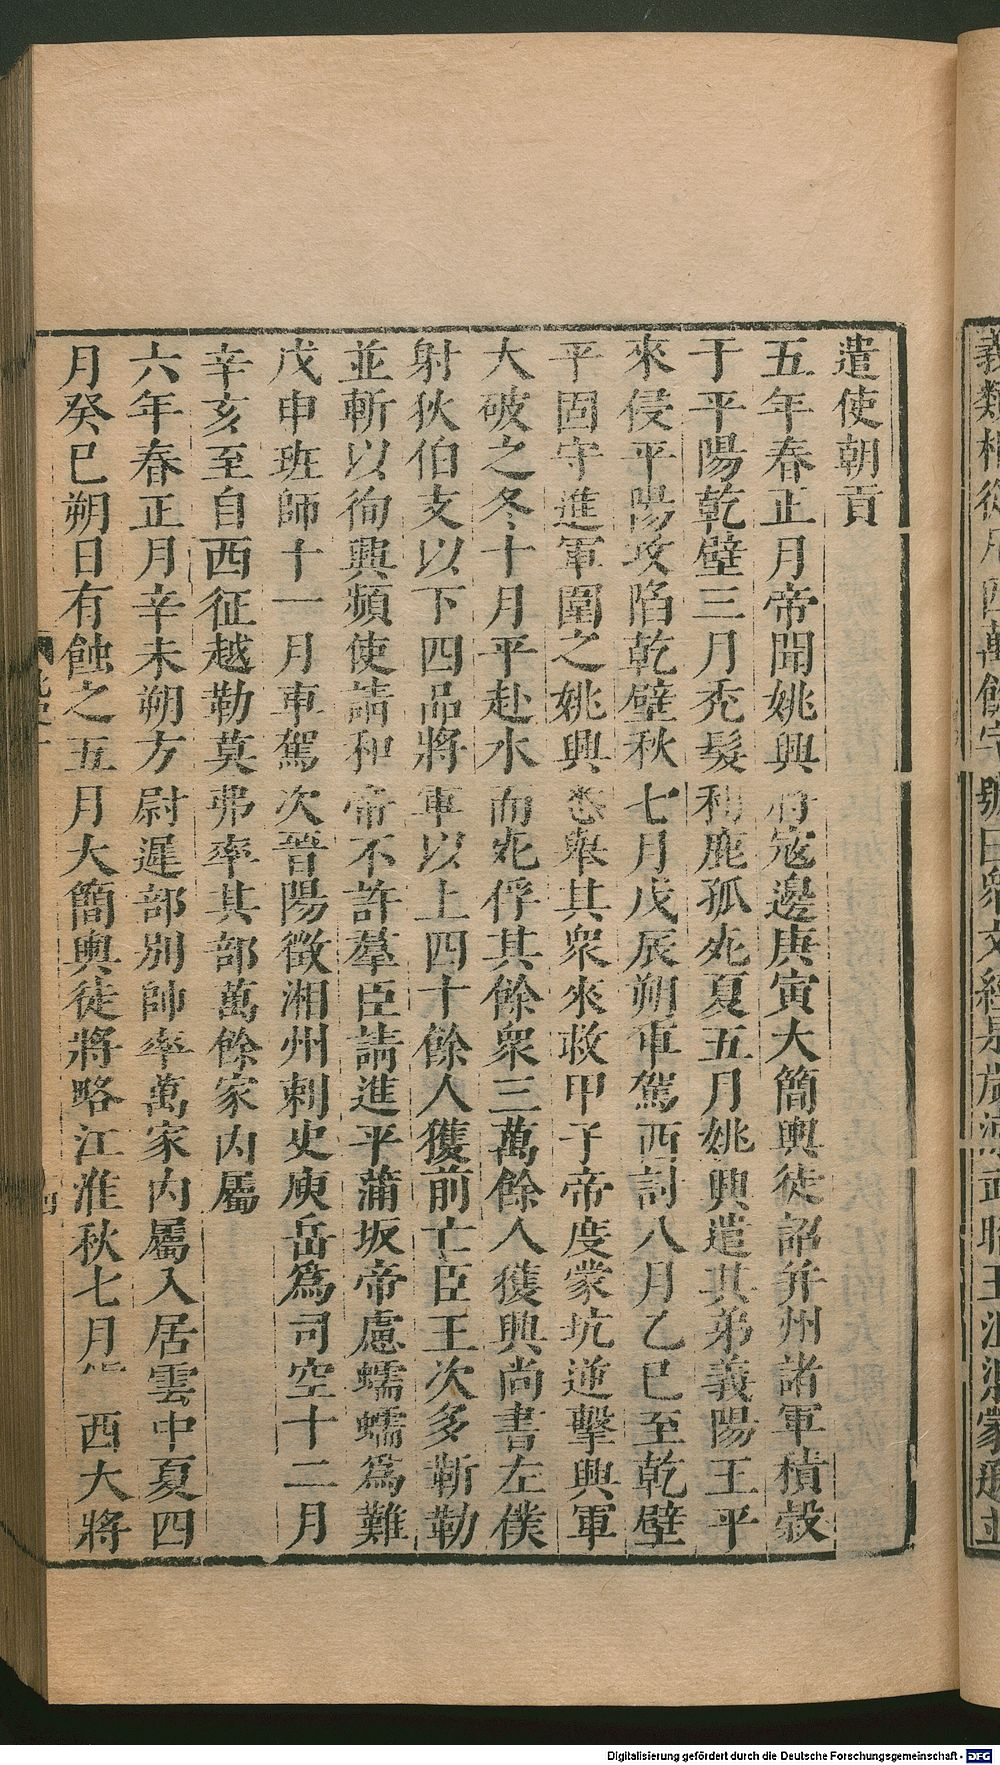 遣使朝貢
五年春正月帝聞姚興將寇邊庚寅大簡輿徒詔并州諸軍積穀
于平陽乾壁三月禿髮利鹿孤死夏五月姚興遣其弟義陽王平
來侵平陽攻陷乾壁秋七月戊辰朔車駕西討八月乙巳至乾壁
平固守進軍圍之姚興悉舉其衆來救甲子帝度蒙坑逆擊興軍
大破之冬十月平赴水而死俘其餘衆三萬餘人獲興尚書左僕
射狄伯支以下四品將軍以上四十餘人獲前亡臣王次多靳勒
並斬以徇興頻使請和帝不許羣臣請進平蒲坂帝慮蠕蠕爲難
戊申班師十一月車駕次晉陽徵湘州刺史庾岳爲司空十二月
辛亥至自西征越勒莫弗率其部萬餘家內屬
六年春正月辛未朔方尉遲部別帥率萬家內屬入居雲中夏四
月癸巳朔日有蝕之五月大簡輿徒將略江淮秋七月 西大將
Digitalisierung gefördert durch die Deutsche Forschungsgemeinschaft - DFG